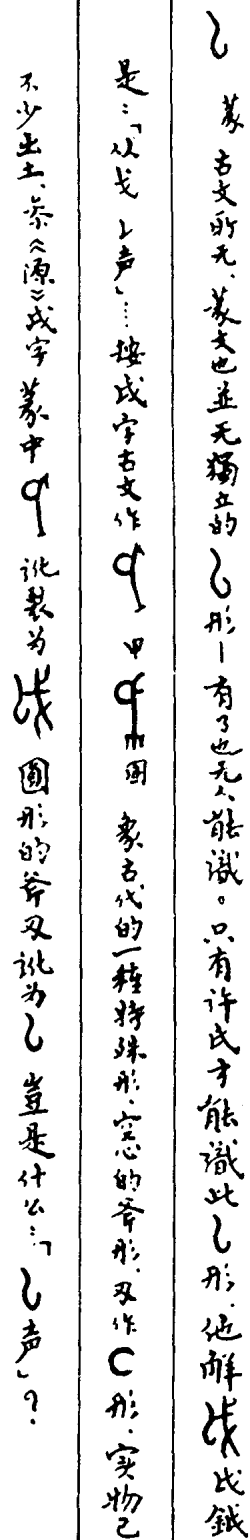 𠄌 篆 古文所无、篆文也並无獨立的𠄌形—有了也无人能識。只有许氏才能識此𠄌形、他解戉戉鉞
是:「从戈𠄌声」…按戉字古文作 甲 圖 象古代的一種特殊形、空心的斧形、刃作C形、实物已
不少出土、参《源》戉字 篆中 訛裂为 圓形的斧刃訛为𠄌 豈是什么:「𠄌声」?